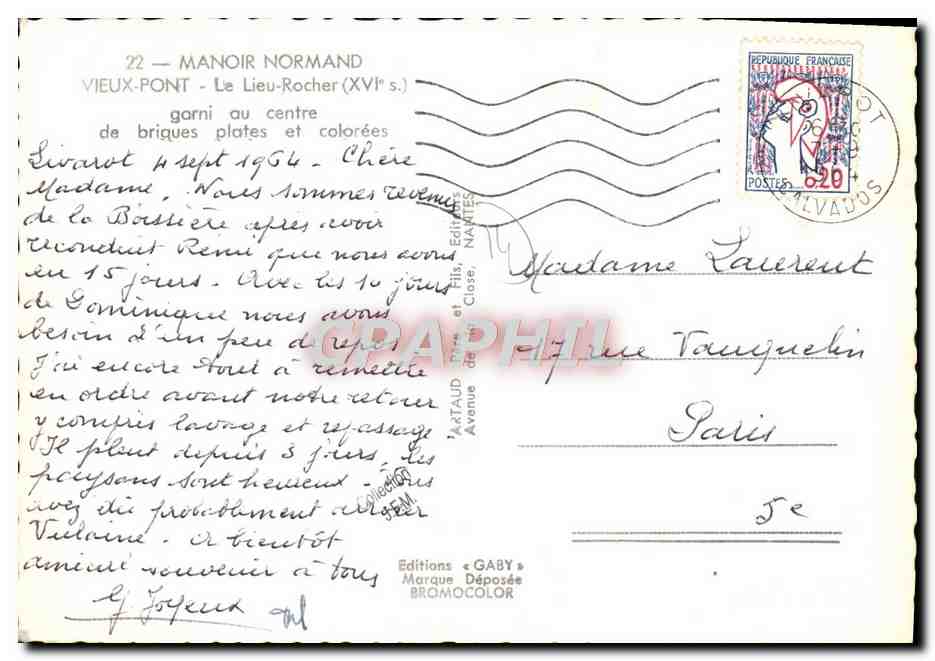 22 — MANOIR NORMAND
VIEUX-PONT - Le Lieu-Rocher (XVIe s.)
garni au centre
de briques plates et colorées
Livarot 4 sept 1964 - Chère
Madame, Nous sommes revenus
de la Boissière après avoir
reconduit René que nous avons
eu 15 jours - Avec les 10 jours
de Dominique nous avons
besoin d'un peu de repos
J'ai encore tout à remettre
en ordre avant notre retour
y compris lavage et repassage
Il pleut depuis 3 jours, les
paysans sont heureux - Vous
avez dû probablement arroser
Vulaine - A bientôt
amical souvenir à tous
G. Joyeux
ARTAUD Père et Fils, Editeurs
Avenue de la Close, NANTES
14
Collection
J.E.M.
Editions « GABY »
Marque Déposée
BROMOCOLOR
REPUBLIQUE FRANÇAISE
POSTES 0,20
CALVADOS
Madame Laurent
17 rue Vauquelin
Paris
5e
CPAPHIL